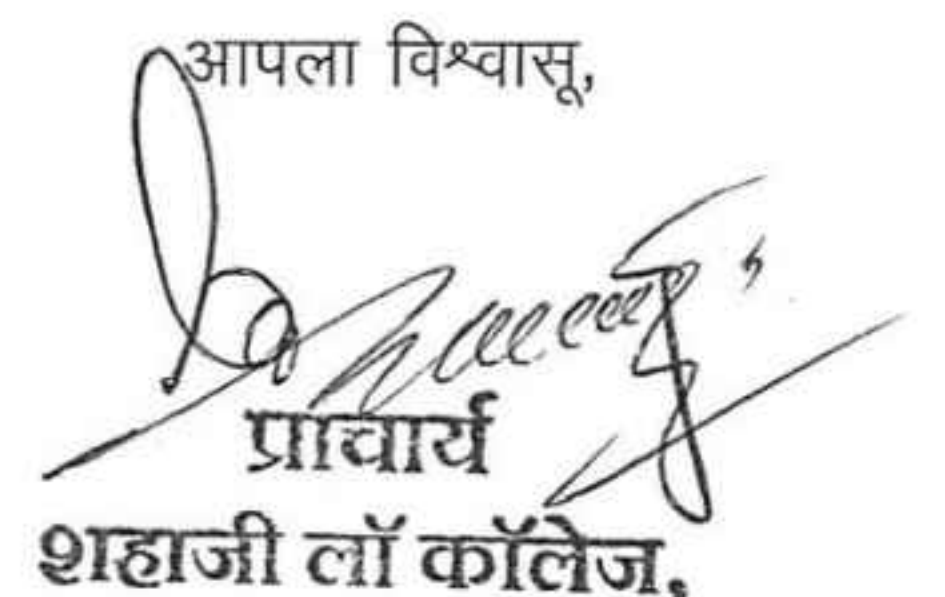 आपला विश्वासू,
प्राचार्य
शहाजी लॉ कॉलेज.